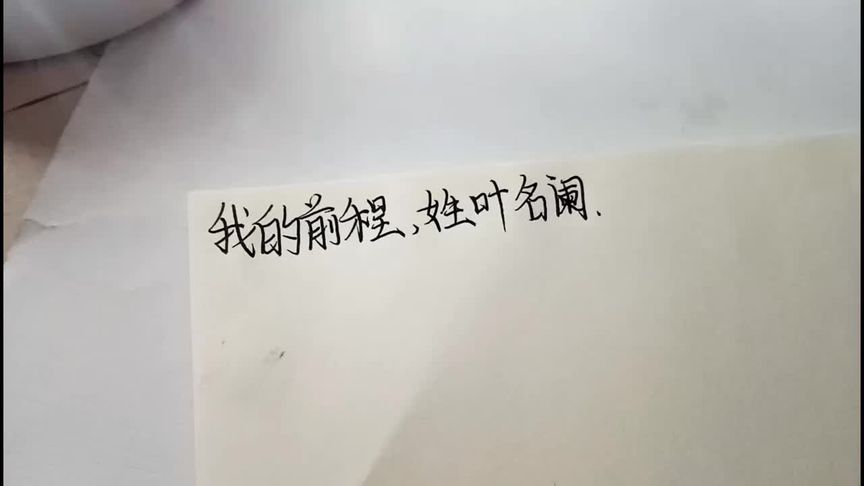 我的前程,姓叶名阑.